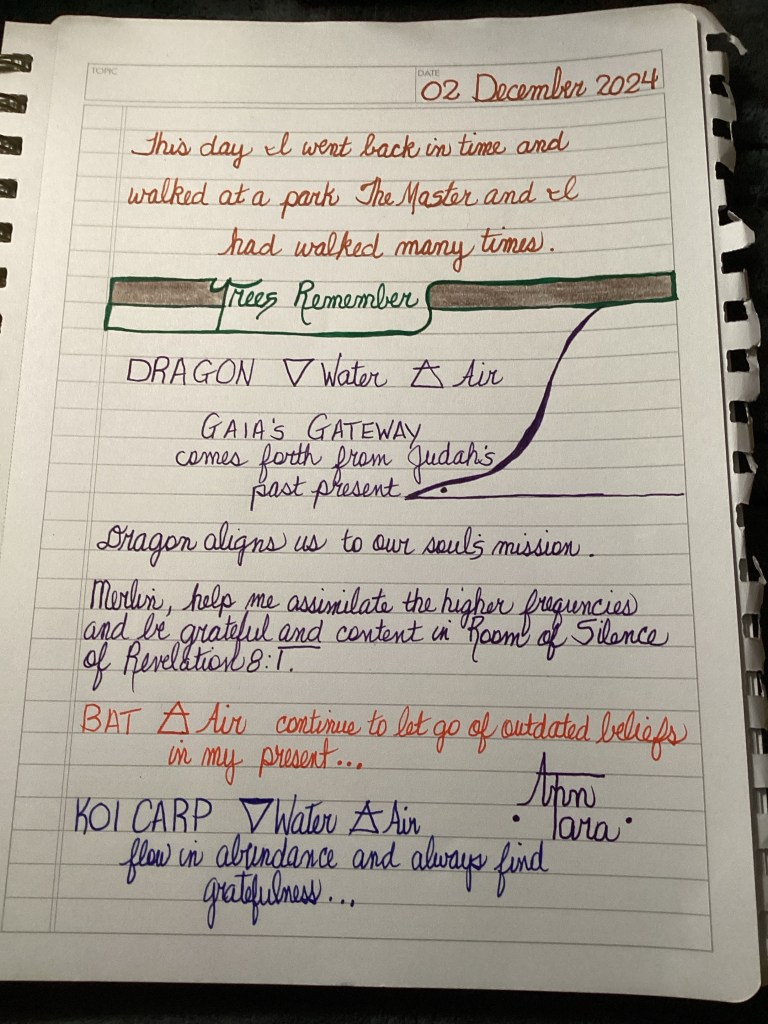 TOPIC
DATE
02 December 2024
This day I went back in time and
walked at a park The Master and I
had walked many times.
Trees Remember
DRAGON ▽ Water △ Air
GAIA's GATEWAY
comes forth from Judah's
past present
Dragon aligns us to our soul's mission.
Merlin, help me assimilate the higher frequncies
and be grateful and content in Room of Silence
of Revelation 8:1.
BAT △ Air continue to let go of outdated beliefs
in my present...
KOI CARP ▽ Water △ Air
flow in abundance and always find
gratefulness...
Tara